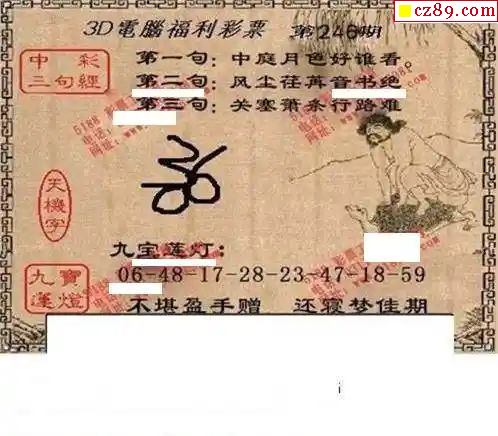 cz89.com
3D電腦福利彩票 第246期
中彩三句經
第一句：中庭月色好谁看
第二句：风尘荏苒音书绝
第三句：关塞萧条行路难
天機字
九宝莲灯：
九寶蓮燈
06-48-17-28-23-47-18-59
不堪盈手赠 还寝梦佳期
i